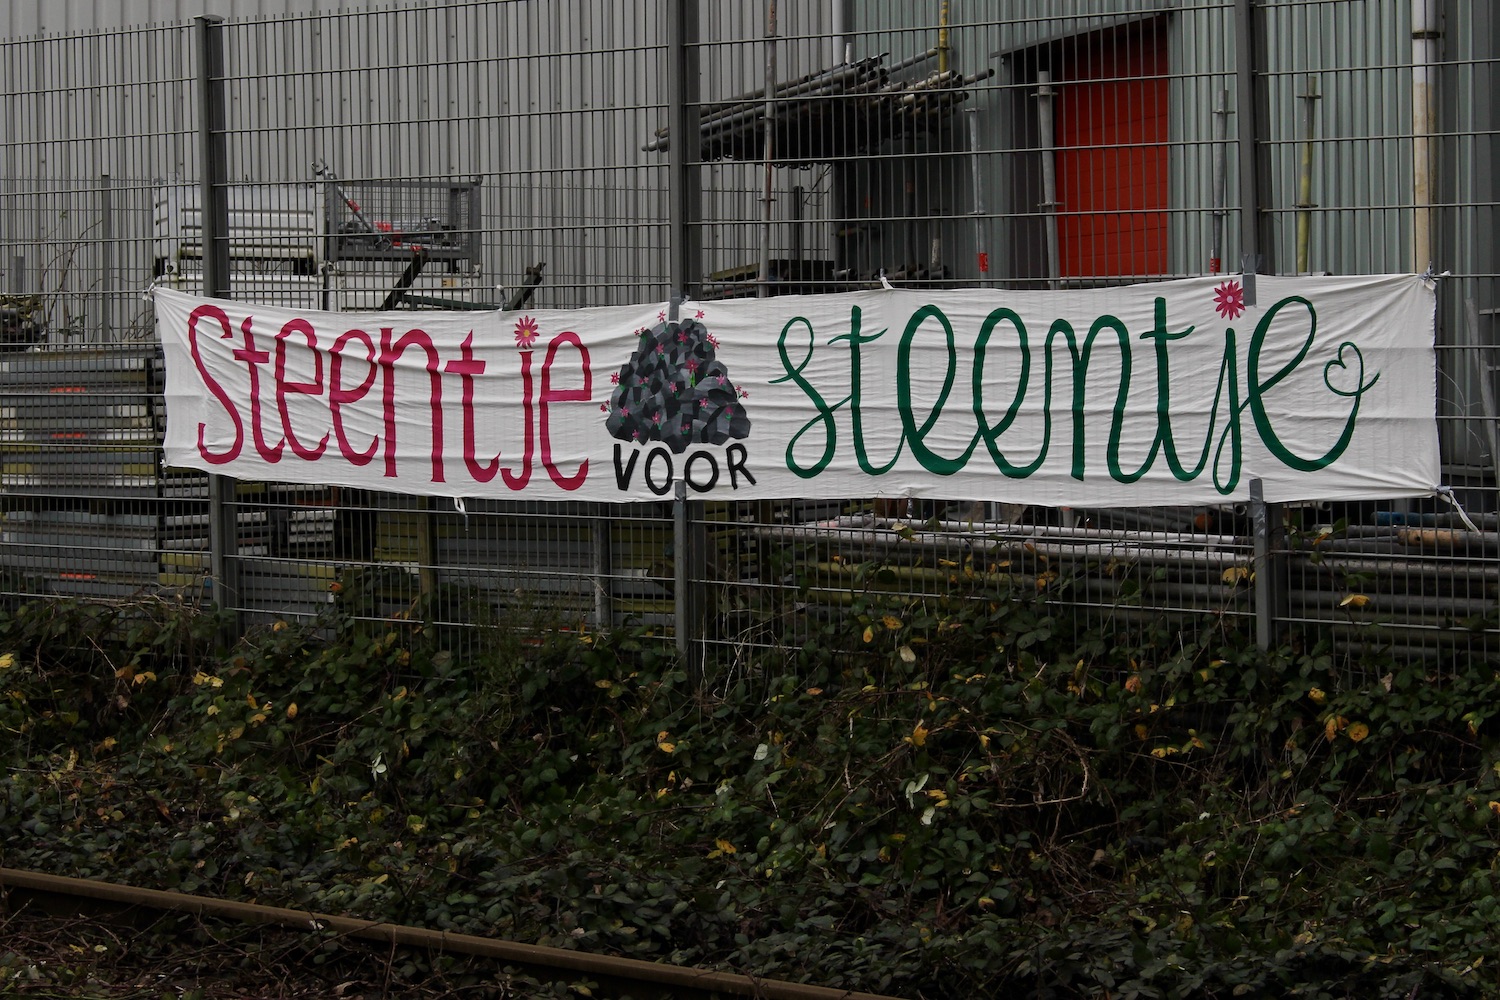 Steentje VOOR steentje